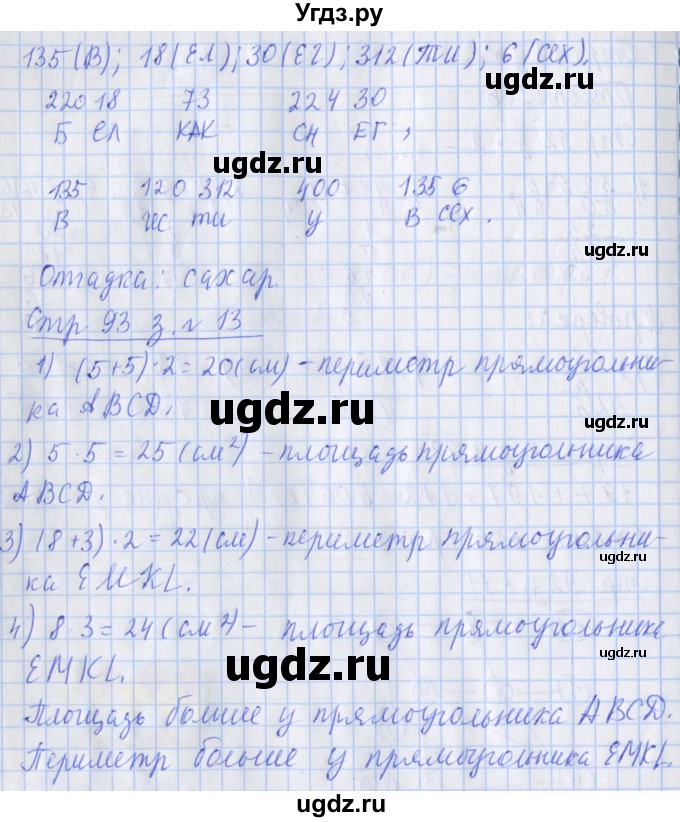 Угдз.ру
135(В); 18(ЕЛ); 30(ЕГ); 312(ТИ); 6(сех).
220 18 73 224 30
Б ЕЛ КАК СН ЕГ,
ugdz.ru
135 120 312 400 135 6
В ис ти у В сех.
ugdz.ru
ugdz.ru
Отгадка: сахар.
Стр 93 з. № 13
1) (5+5)·2=20(см) - периметр прямоугольни-
ugdz.ru
ка ABCD.
ugdz.ru
2) 5·5=25(см²) - площадь прямоугольника
ABCD.
3) (8+3)·2=22(см) - периметр прямоугольни-
ugdz.ru
ка EMKL.
4) 8·3=24(см²) - площадь прямоугольника
ugdz.ru
ugdz.ru
EMKL.
Площадь больше у прямоугольника ABCD.
Периметр больше у прямоугольника EMKL.
ugdz.ru